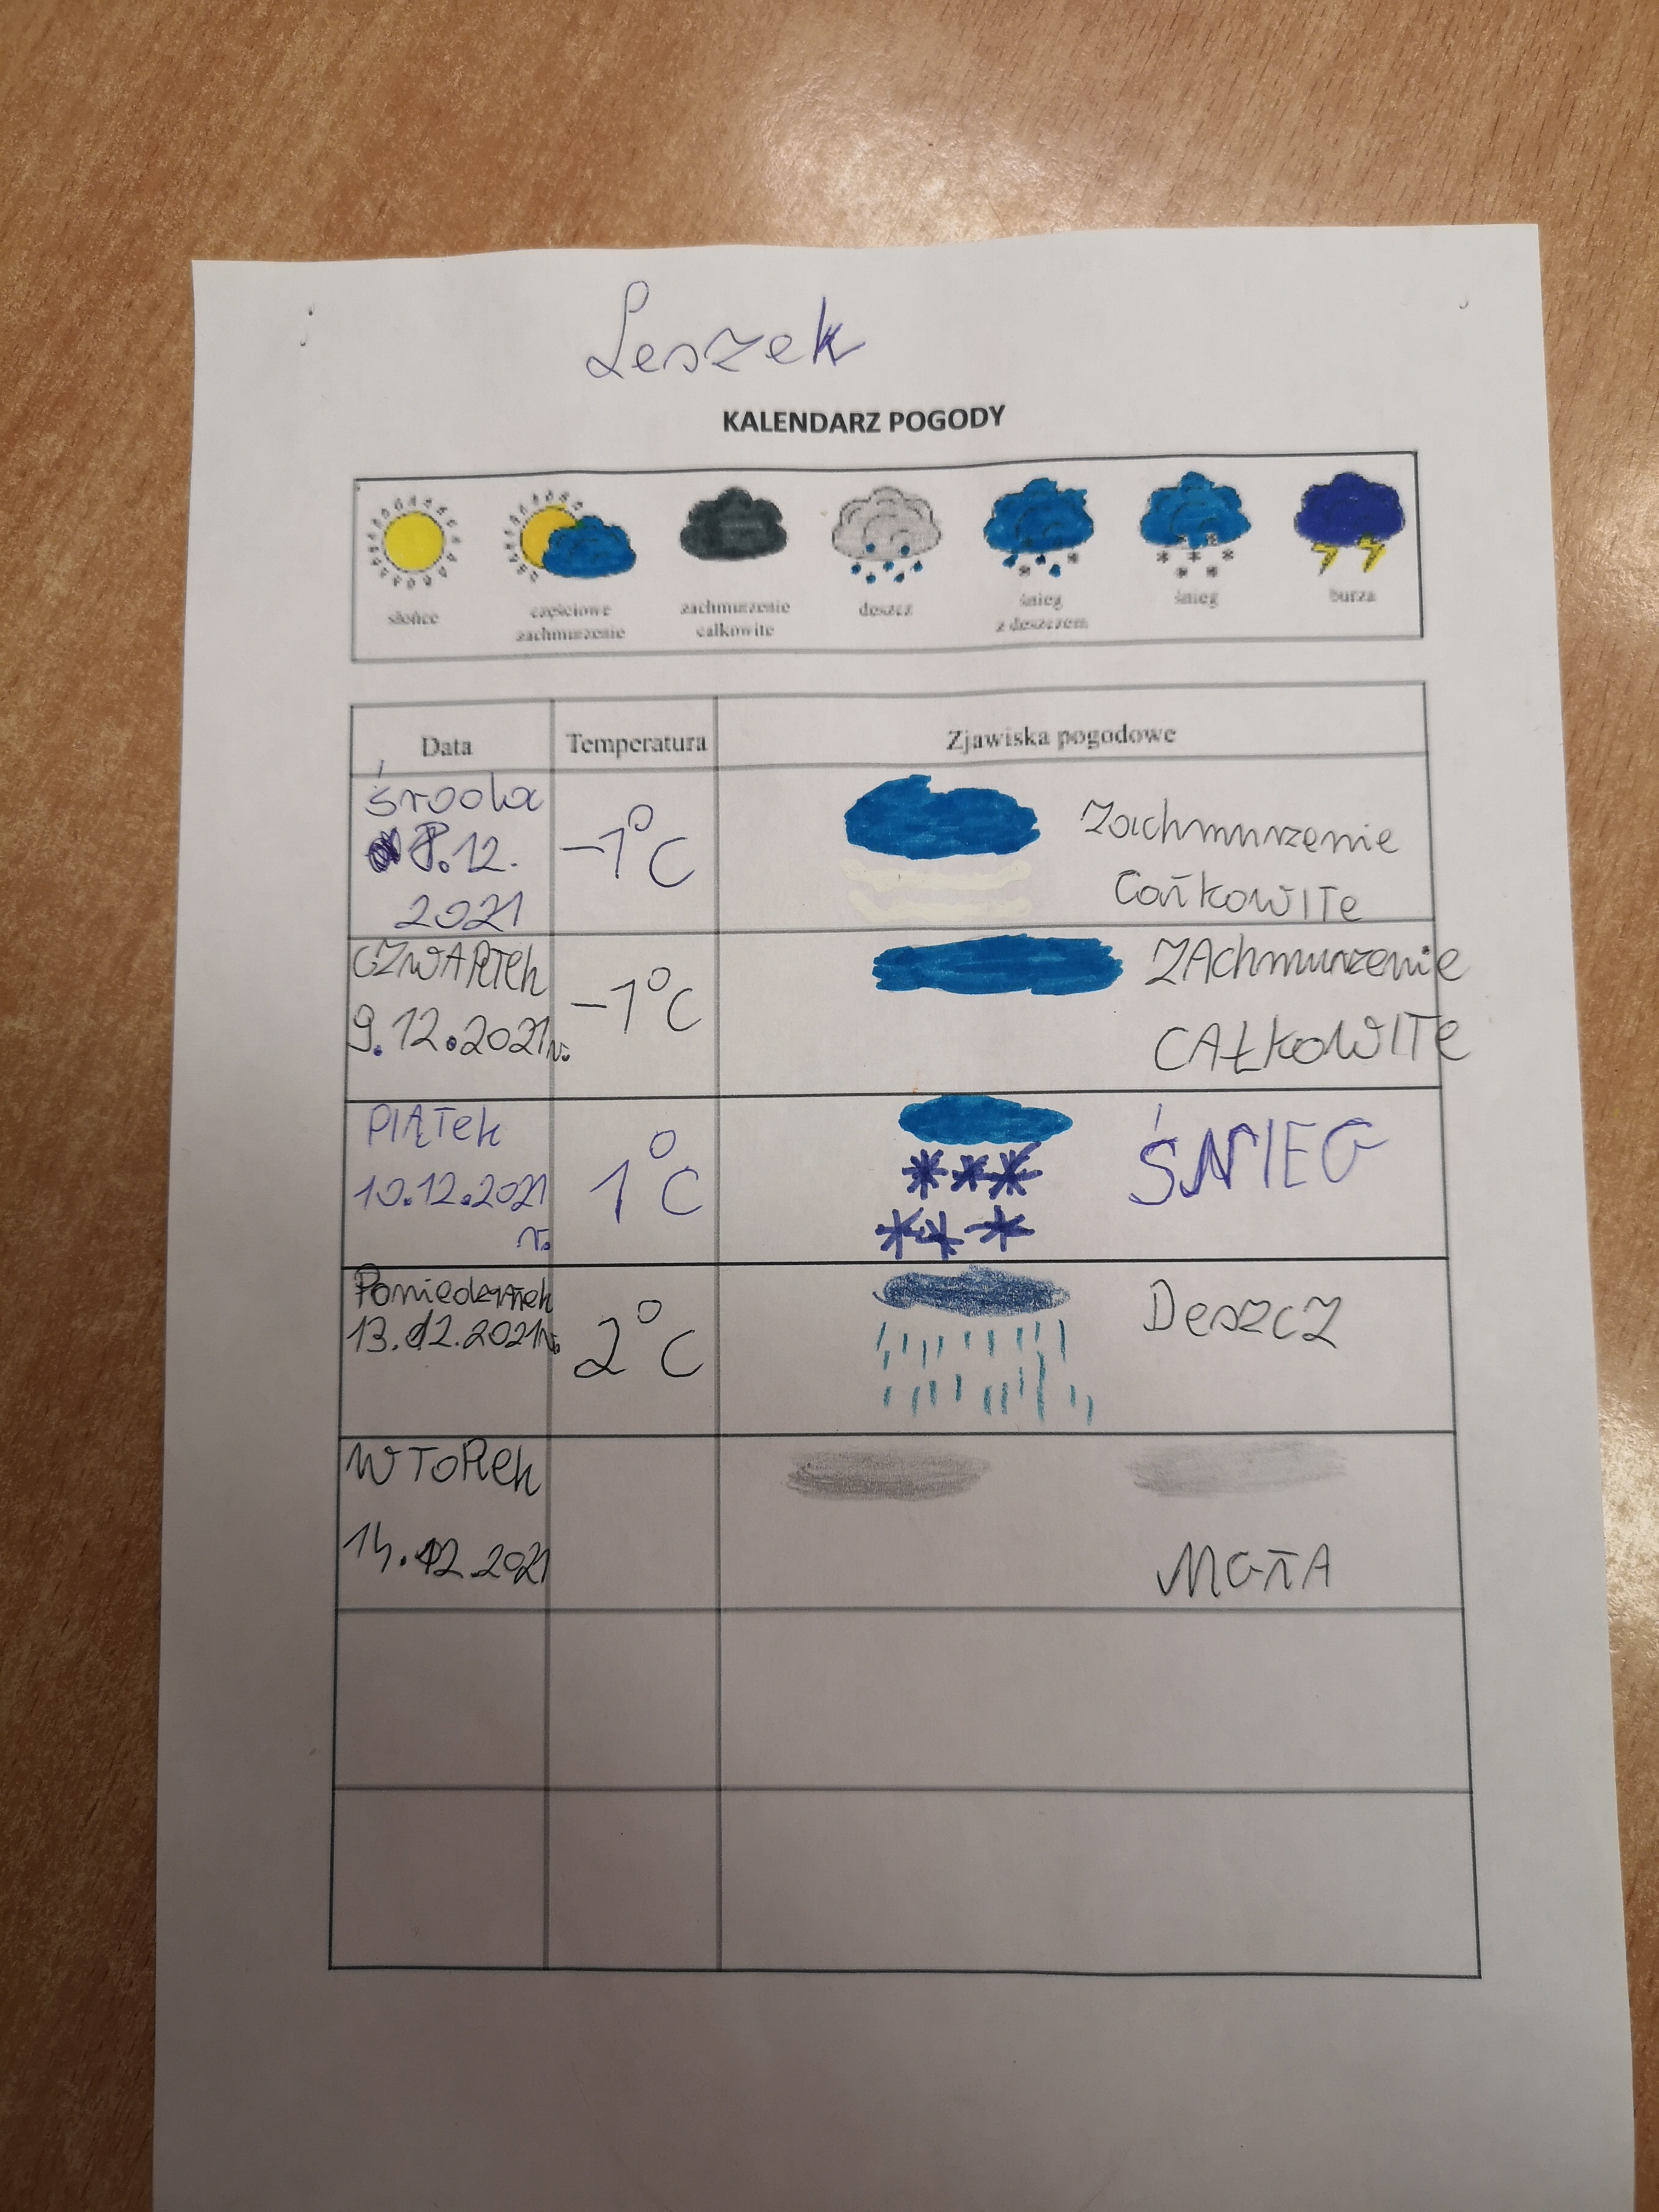 Leszek
KALENDARZ POGODY
słońce
częściowe
zachmurzenie
zachmurzenie
całkowite
deszcz
śnieg
z deszczem
śnieg
burza
Data Temperatura Zjawiska pogodowe
środa
8.12.
2021
-1°C
Zachmurzenie
Całkowite
CZWARTEk
9.12.2021r.
-1°C
ZAchmurzenie
CAŁkoWITe
PIĄTek
10.12.2021
r.
1°C
ŚNIEG
Poniedziałek
13.12.2021r.
2°C
Deszcz
WTORek
14.12.2021
MGŁA